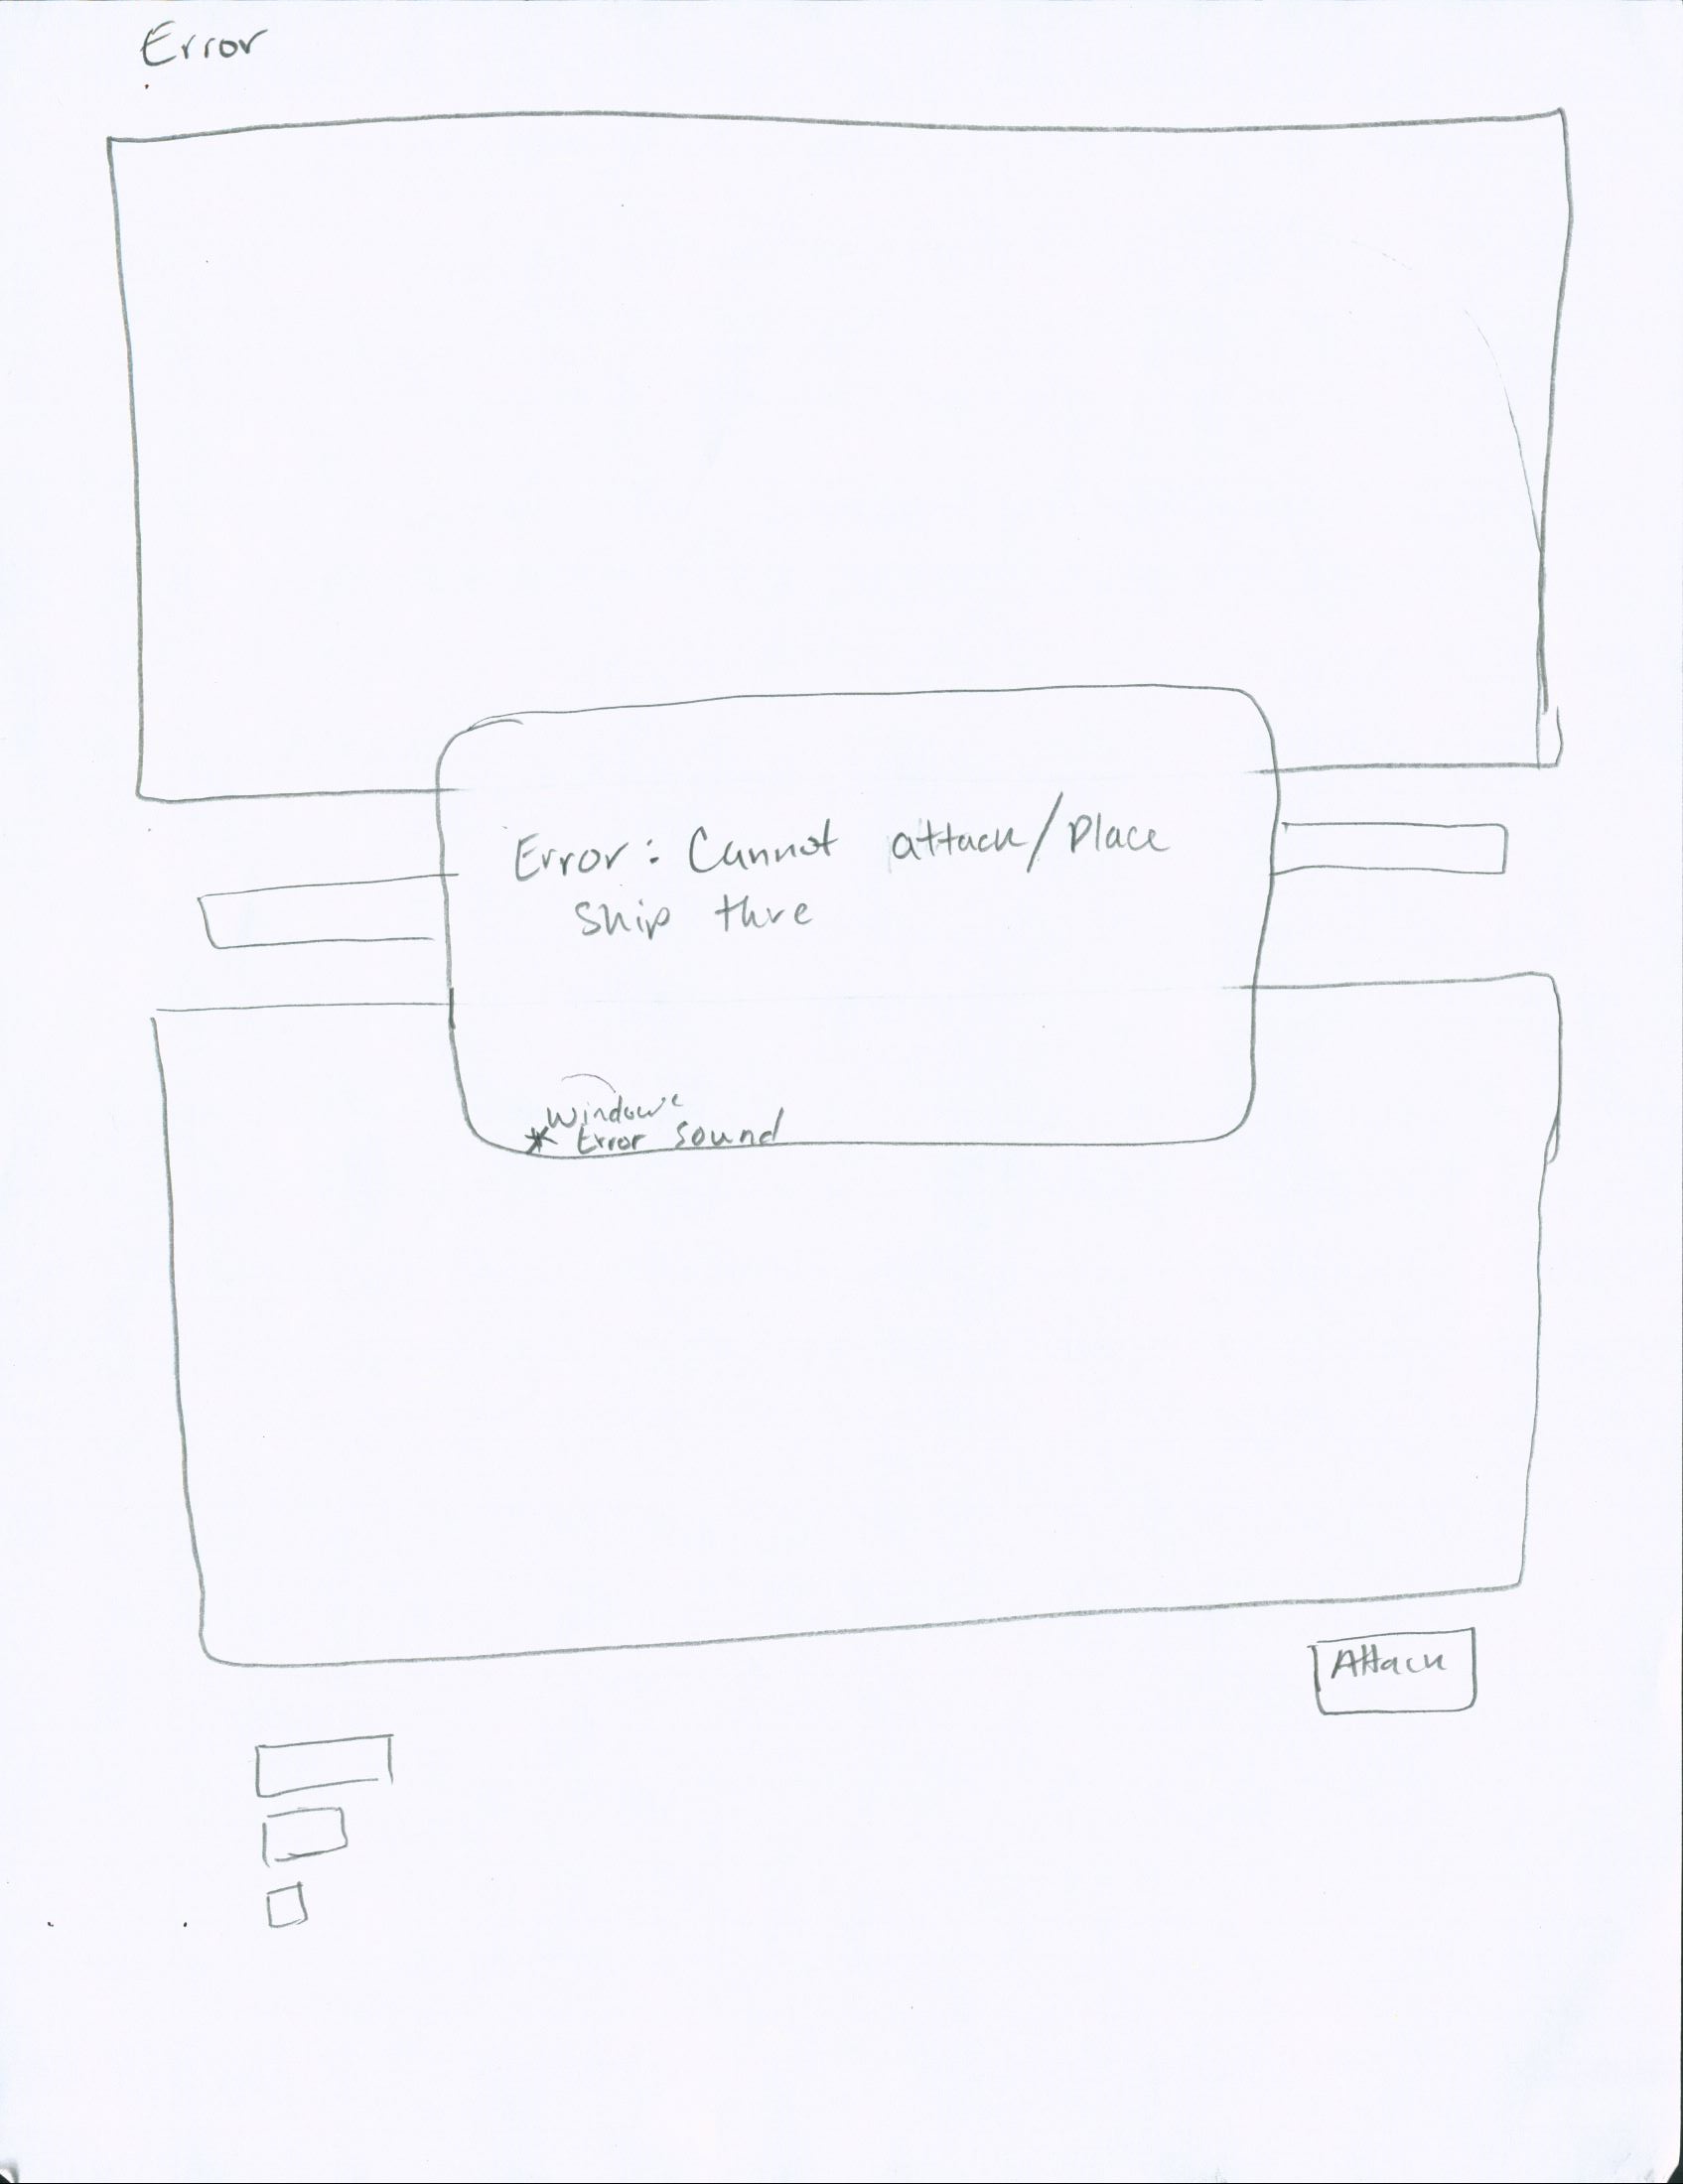 Error
Error: Cannot attack/Place
ship thre
Windows
* Error sound
Attack